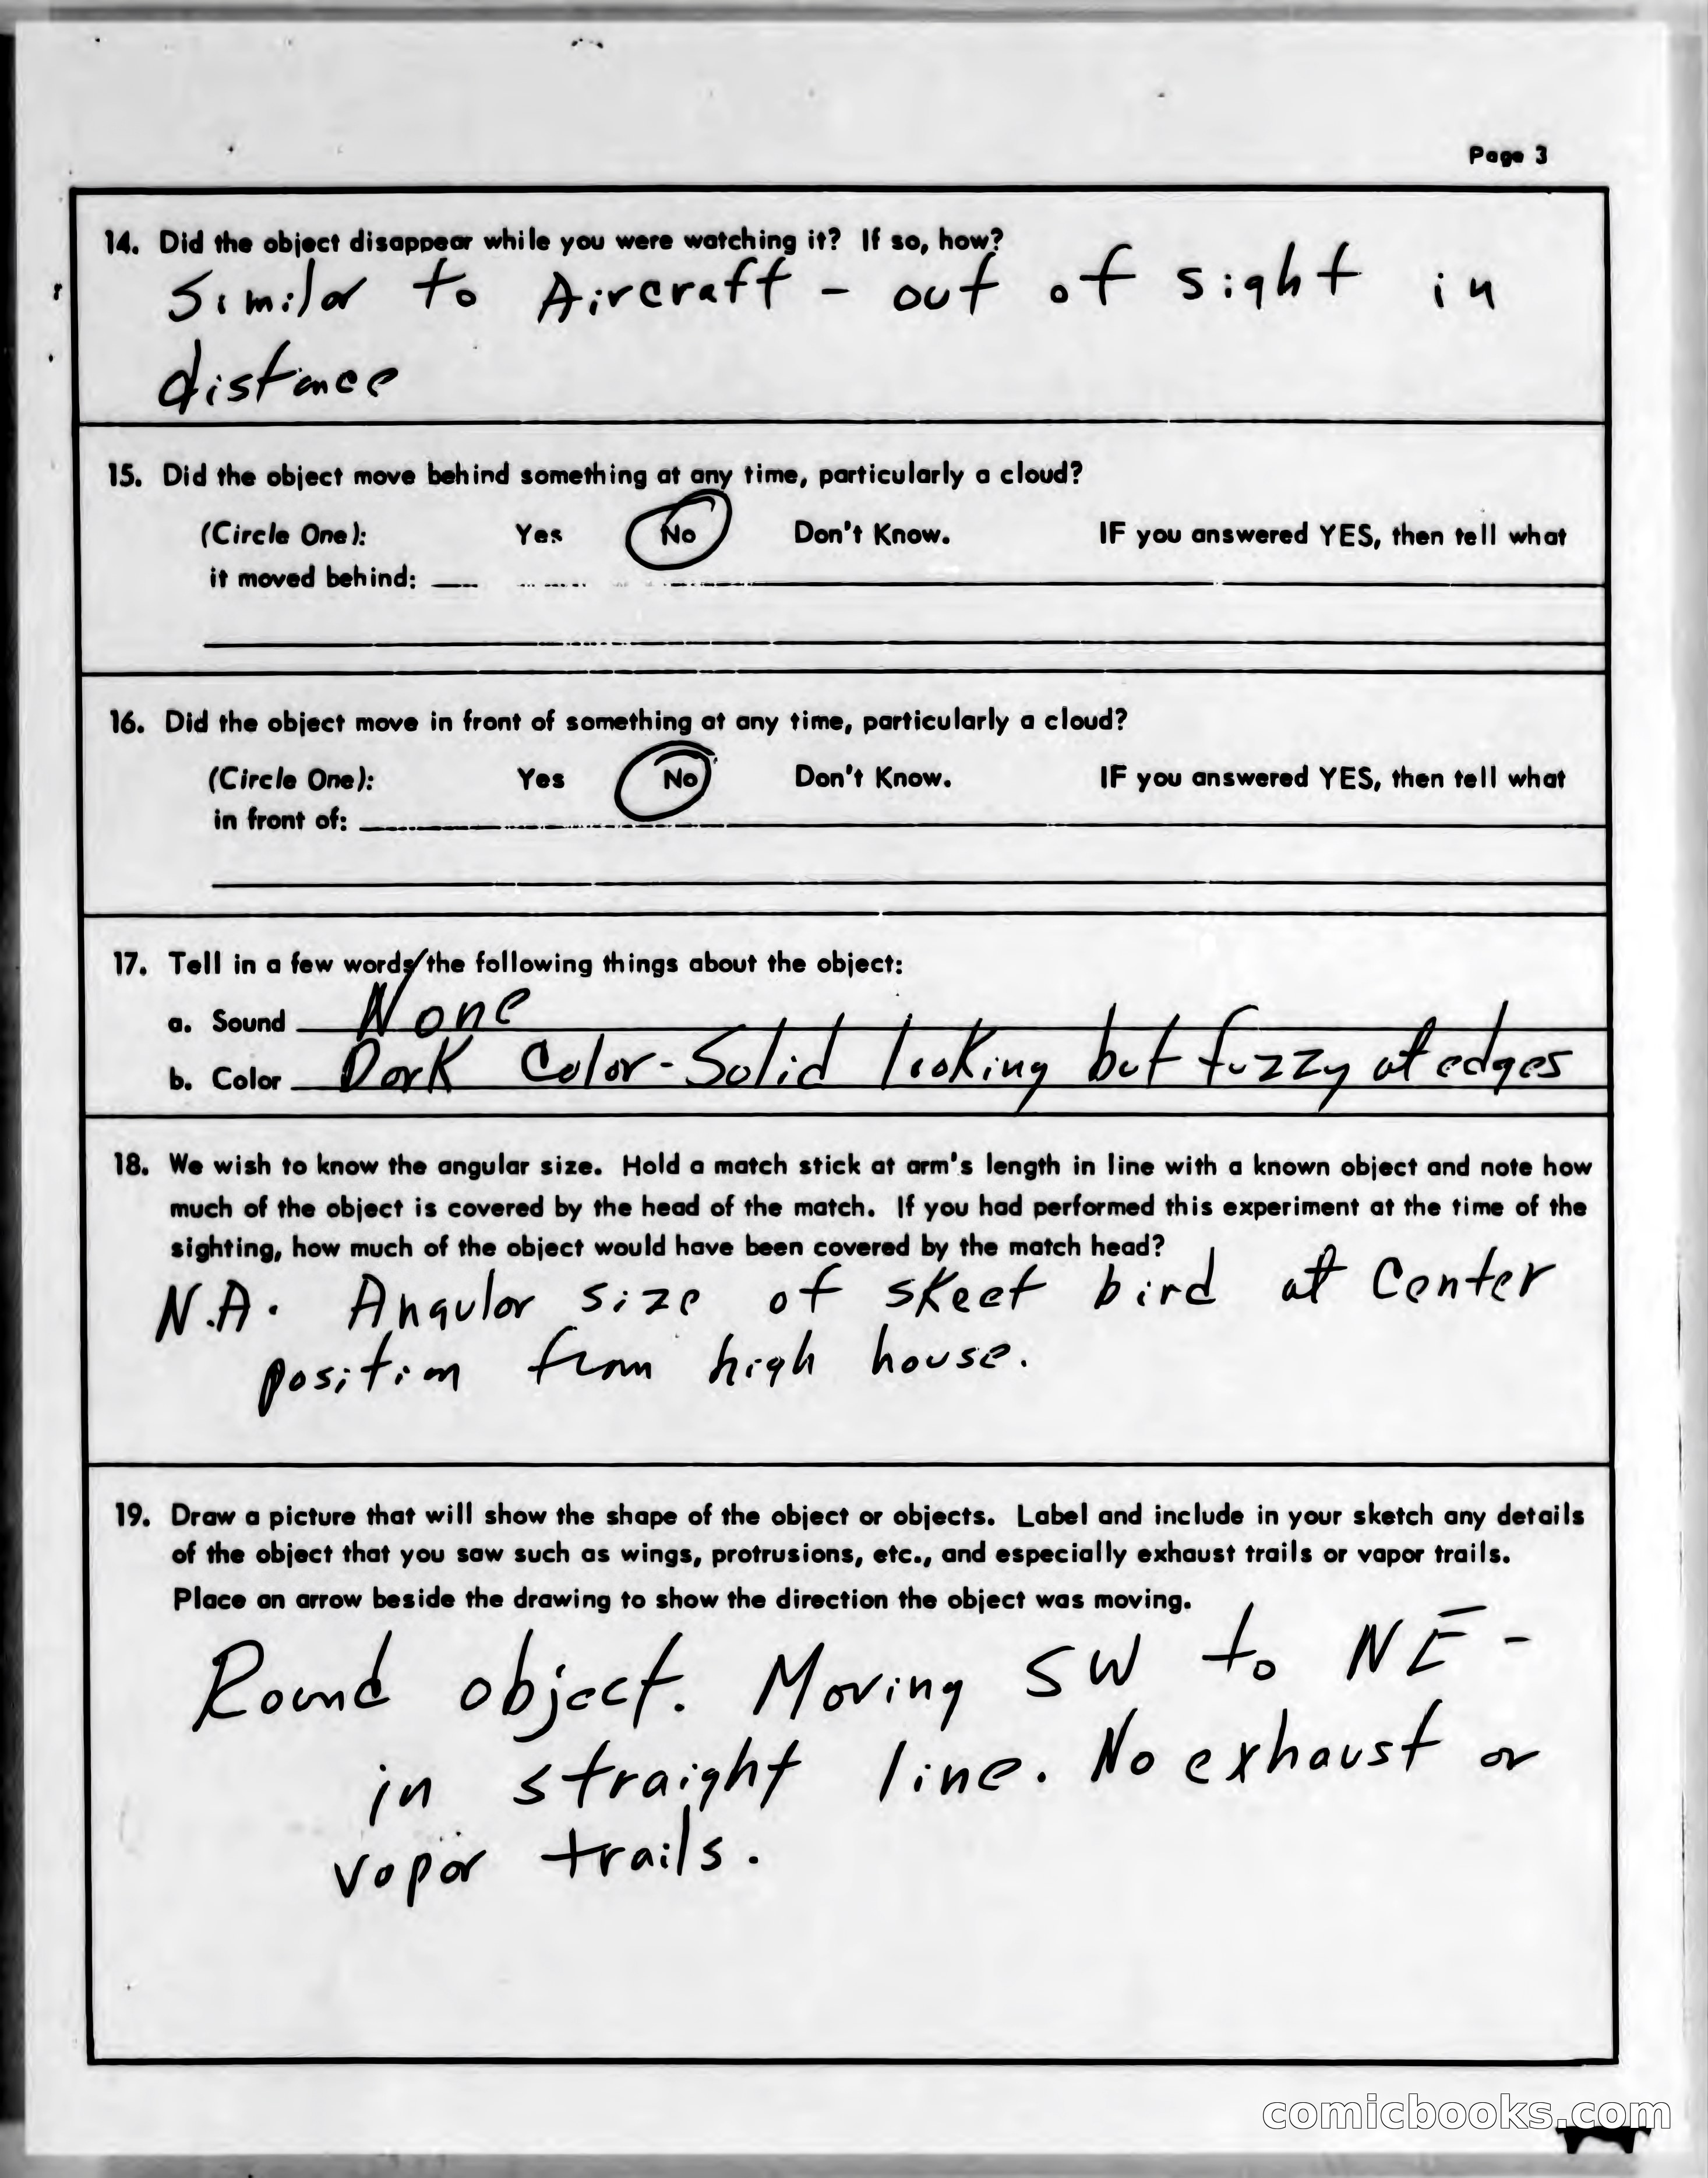 Page 3
14. Did the object disappear while you were watching it? If so, how?
Similar to Aircraft - out of sight in
distance
15. Did the object move behind something at any time, particularly a cloud?
(Circle One): Yes No Don't Know. IF you answered YES, then tell what
it moved behind:
16. Did the object move in front of something at any time, particularly a cloud?
(Circle One): Yes No Don't Know. IF you answered YES, then tell what
in front of:
17. Tell in a few words the following things about the object:
a. Sound None
b. Color Dark Color - Solid looking but fuzzy at edges
18. We wish to know the angular size. Hold a match stick at arm's length in line with a known object and note how
much of the object is covered by the head of the match. If you had performed this experiment at the time of the
sighting, how much of the object would have been covered by the match head?
N.A. Angular size of skeet bird at Center
position from high house.
19. Draw a picture that will show the shape of the object or objects. Label and include in your sketch any details
of the object that you saw such as wings, protrusions, etc., and especially exhaust trails or vapor trails.
Place an arrow beside the drawing to show the direction the object was moving.
Round object. Moving SW to NE -
in straight line. No exhaust or
vapor trails.
comicbooks.com